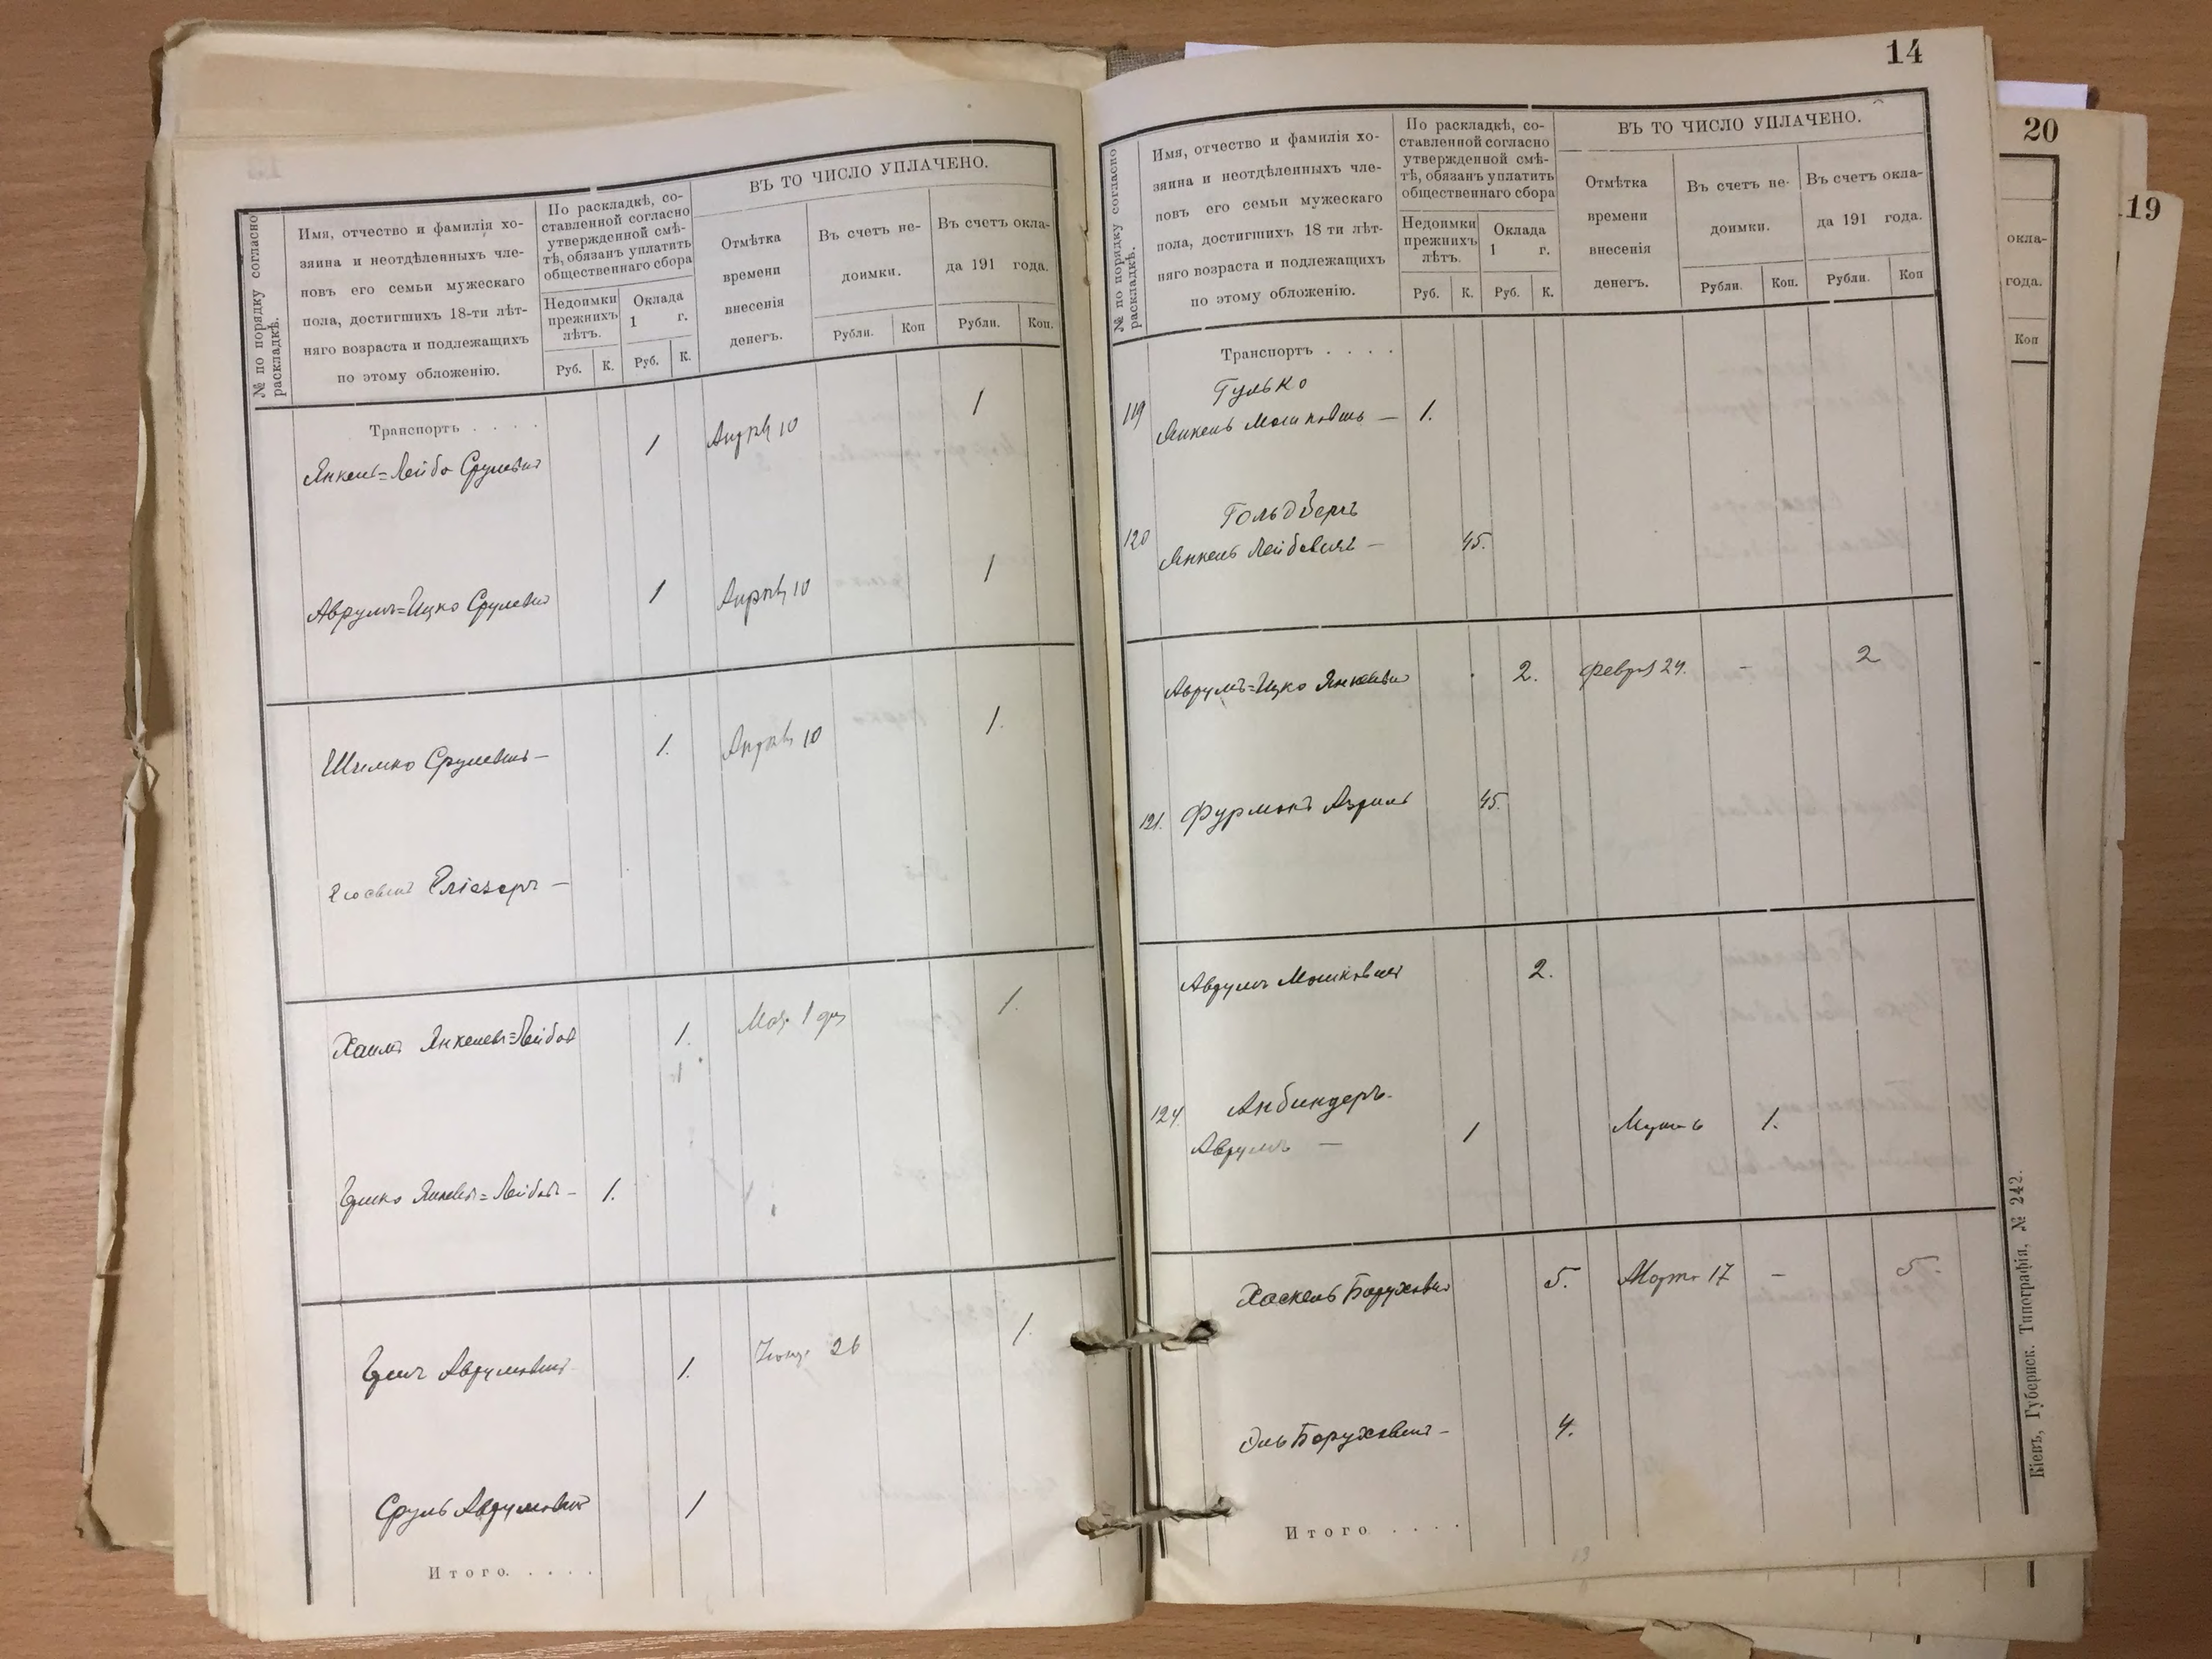 № по порядку согласно
раскладкѣ.
Имя, отчество и фамилія хо-
зяина и неотдѣленныхъ чле-
новъ его семьи мужескаго
пола, достигшихъ 18-ти лѣт-
няго возраста и подлежащихъ
по этому обложенію.
По раскладкѣ, со-
ставленной согласно
утвержденной смѣ-
тѣ, обязанъ уплатить
общественнаго сбора
Недоимки
прежнихъ
лѣтъ.
Оклада
1 г.
Руб. К. Руб. К.
ВЪ ТО ЧИСЛО УПЛАЧЕНО.
Отмѣтка
времени
внесенія
денегъ.
Въ счетъ не-
доимки.
Въ счетъ окла-
да 191 года.
Рубли. Коп Рубли. Коп.
Транспортъ . . . .
Янкель=Лейба Срулевич 1 10 1
Аврумъ=Ицко Срулевич 1 10 1
Шимко Срулевичъ — 1. 10 1.
Еліезеръ —
Хаимъ Янкелев=Лейбов 1. 1.
=Лейбов — 1.
Аврумович 1. 26 1.
Сруль Аврумович 1
Итого. . . . .
14
№ по порядку согласно
раскладкѣ.
Имя, отчество и фамилія хо-
зяина и неотдѣленныхъ чле-
новъ его семьи мужескаго
пола, достигшихъ 18 ти лѣт-
няго возраста и подлежащихъ
по этому обложенію.
По раскладкѣ, со-
ставленной согласно
утвержденной смѣ-
тѣ, обязанъ уплатить
общественнаго сбора
Недоимки
прежнихъ
лѣтъ.
Оклада
1 г.
Руб. К. Руб. К.
ВЪ ТО ЧИСЛО УПЛАЧЕНО.
Отмѣтка
времени
внесенія
денегъ.
Въ счетъ не-
доимки.
Въ счетъ окла-
да 191 года.
Рубли. Коп. Рубли. Коп
Транспортъ . . . .
Гулько
119 Янкель Мошковичъ — 1.
Гольдберг
120 Янкель Лейбович — 45.
Аврумъ=Ицко Янкелевич 2. Феврал 24. — 2
121. Фурманъ Азриль 45.
Аврумъ Мошкович 2.
124. Анбиндеръ
Аврумъ — 1 1.
Хаскель Борухович 5. Март 17 — 5
Борухович — 4.
Итого . . . .
Кіевъ, Губернск. Типографія, № 242.
20
окла-
года.
Коп
19